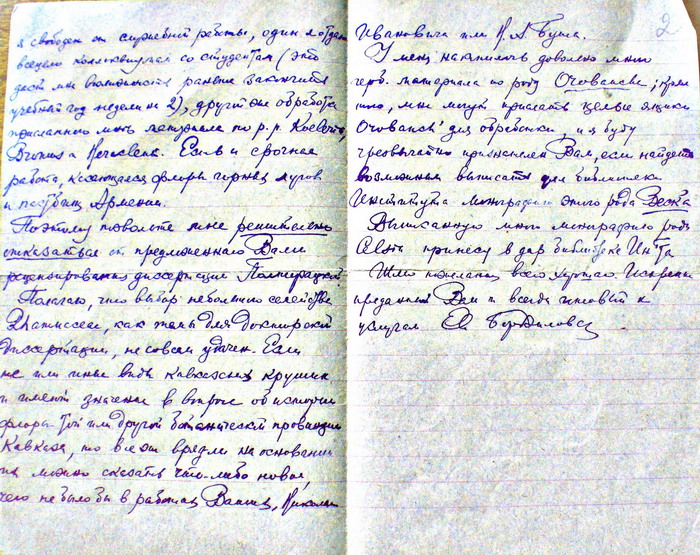 я свободен от служебной работы, один я отдаю
всецело коллоквиумам со студентами (это
даст мне возможность раньше закончить
учебный год недели на 2), другой же обработке
присланного мне материала по р. р. Koeleria,
Bromus и Есть и срочная
работа, касающаяся флоры горных лугов
и пастбищ Армении.
Поэтому позвольте мне решительно
отказаться от предложенного Вами
рецензирования диссертации
Полагаю, что выбор небольшого семейства
Rhamnaceae, как темы для докторской
диссертации, не совсем удачен. Если
те или иные виды кавказских крушин
и имеют значение в вопросе об истории
флоры той или другой ботанической провинции
Кавказа, то все же вряд ли на основании
их можно сказать что-либо новое,
чего не было бы в работах Ваших, Николая
2
Ивановича или Н А Буша.
У меня накопилось довольно много
герб. материала по роду ; кроме
того, мне могут прислать целые ящики
для обработки, и я буду
чрезвычайно признателен Вам, если найдете
возможным выписать для библиотеки
Института монографию этого рода
Выписанную мною монографию рода
принесу в дар библиотеке Ин-та
Шлю пожелания всего хорошего Искренне
преданный Вам и всегда готовый к
услугам Е